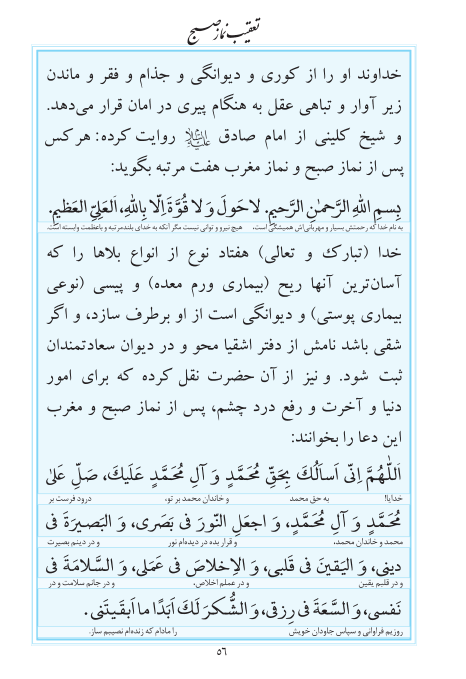 تعقیب نماز صبح
خداوند او را از کوری و دیوانگی و جذام و فقر و ماندن
زیر آوار و تباهی عقل به هنگام پیری در امان قرار می‌دهد.
و شیخ کلینی از امام صادق علیه‌السلام روایت کرده: هر کس
پس از نماز صبح و نماز مغرب هفت مرتبه بگوید:
بِسمِ اللهِ الرَّحمٰنِ الرَّحیمِ. لا حَولَ وَ لا قُوَّةَ اِلّا بِاللهِ، اَلعَلِیِّ العَظیمِ.
به نام خدا که رحمتش بسیار و مهربانی‌اش همیشگی است. هیچ نیرو و توانی نیست مگر آنکه به خدای بلندمرتبه و باعظمت وابسته است.
خدا (تبارك و تعالی) هفتاد نوع از انواع بلاها را که
آسان‌ترین آنها ریح (بیماری ورم معده) و پیسی (نوعی
بیماری پوستی) و دیوانگی است از او برطرف سازد، و اگر
شقی باشد نامش از دفتر اشقیا محو و در دیوان سعادتمندان
ثبت شود. و نیز از آن حضرت نقل کرده که برای امور
دنیا و آخرت و رفع درد چشم، پس از نماز صبح و مغرب
این دعا را بخوانند:
اَللّٰهُمَّ اِنّی اَسأَلُكَ بِحَقِّ مُحَمَّدٍ وَ آلِ مُحَمَّدٍ عَلَیكَ، صَلِّ عَلیٰ
خدایا! به حق محمد و خاندان محمد بر تو، درود فرست بر
مُحَمَّدٍ وَ آلِ مُحَمَّدٍ، وَ اجعَلِ النّورَ فی بَصَری، وَ البَصیرَةَ فی
محمد و خاندان محمد، و قرار بده در دیده‌ام نور و در دینم بصیرت
دینی، وَ الیَقینَ فی قَلبی، وَ الاِخلاصَ فی عَمَلی، وَ السَّلامَةَ فی
و در قلبم یقین و در عملم اخلاص، و در جانم سلامت و در
نَفسی، وَ السَّعَةَ فی رِزقی، وَ الشُّکرَ لَكَ اَبَدًا ما اَبقَیتَنی.
روزیم فراوانی و سپاس جاودان خویش را مادام که زنده‌ام نصیبم ساز.
٥٦